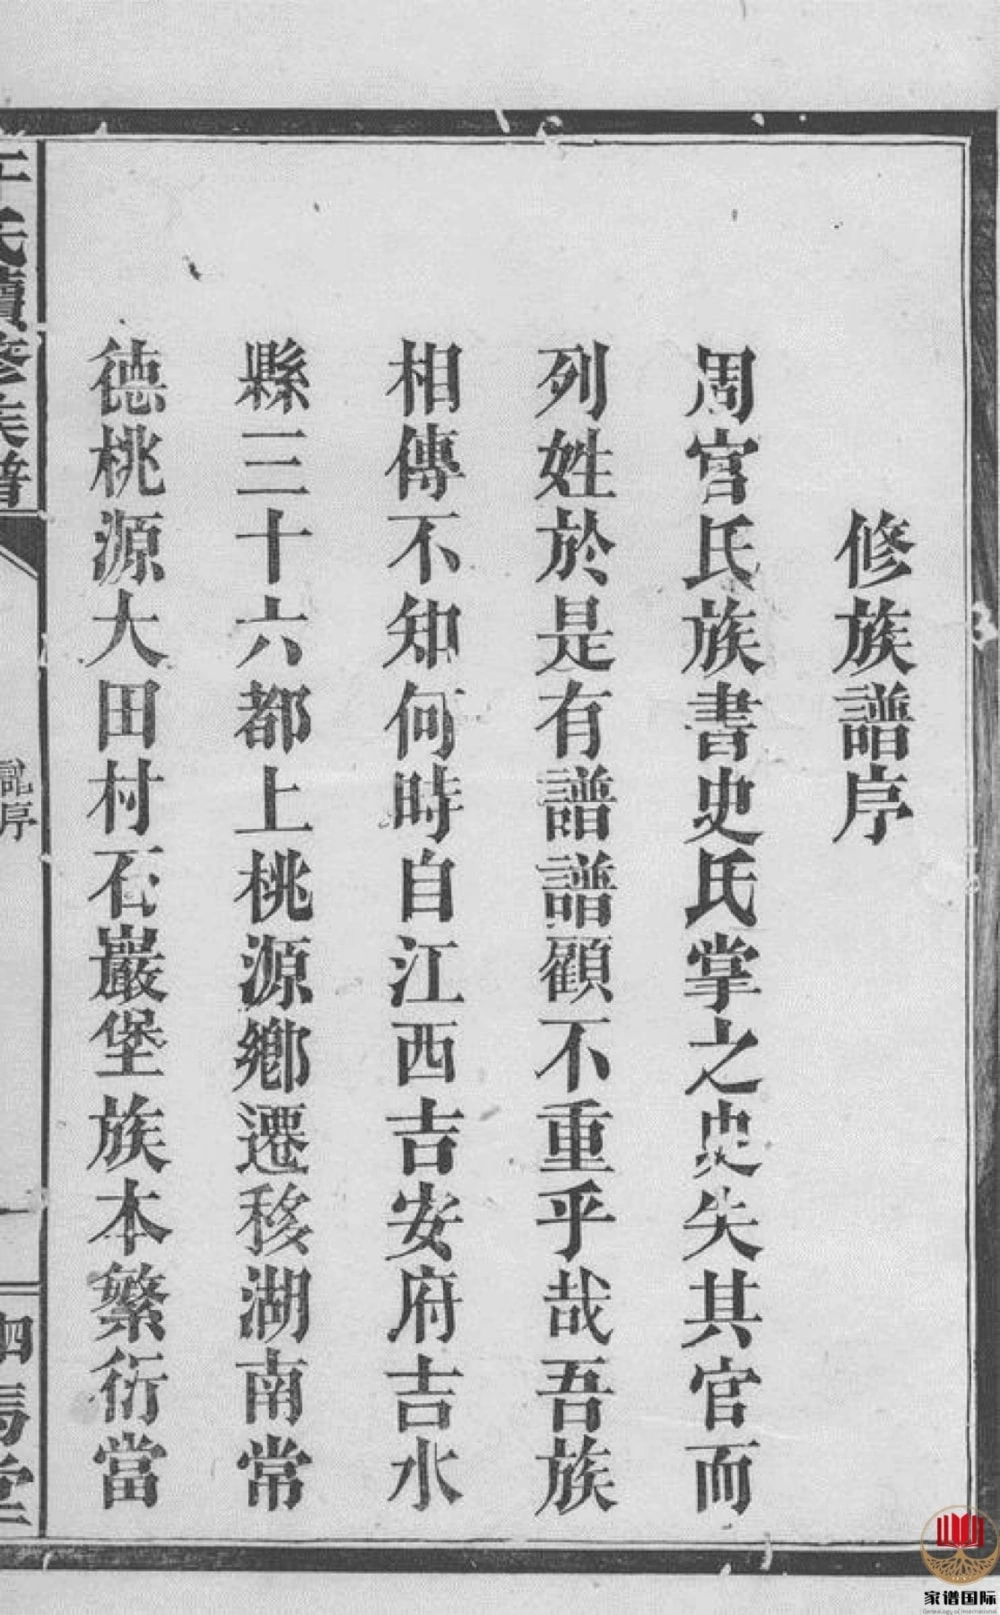 修族譜序
周官氏族書史氏掌之史失其官而
列姓於是有譜譜顧不重乎哉吾族
相傳不知何時自江西吉安府吉水
縣三十六都上桃源鄉遷移湖南常
德桃源大田村石巖堡族本繁衍當
氏續修族譜
序
一
馬堂
家谱国际
Genealogy of International